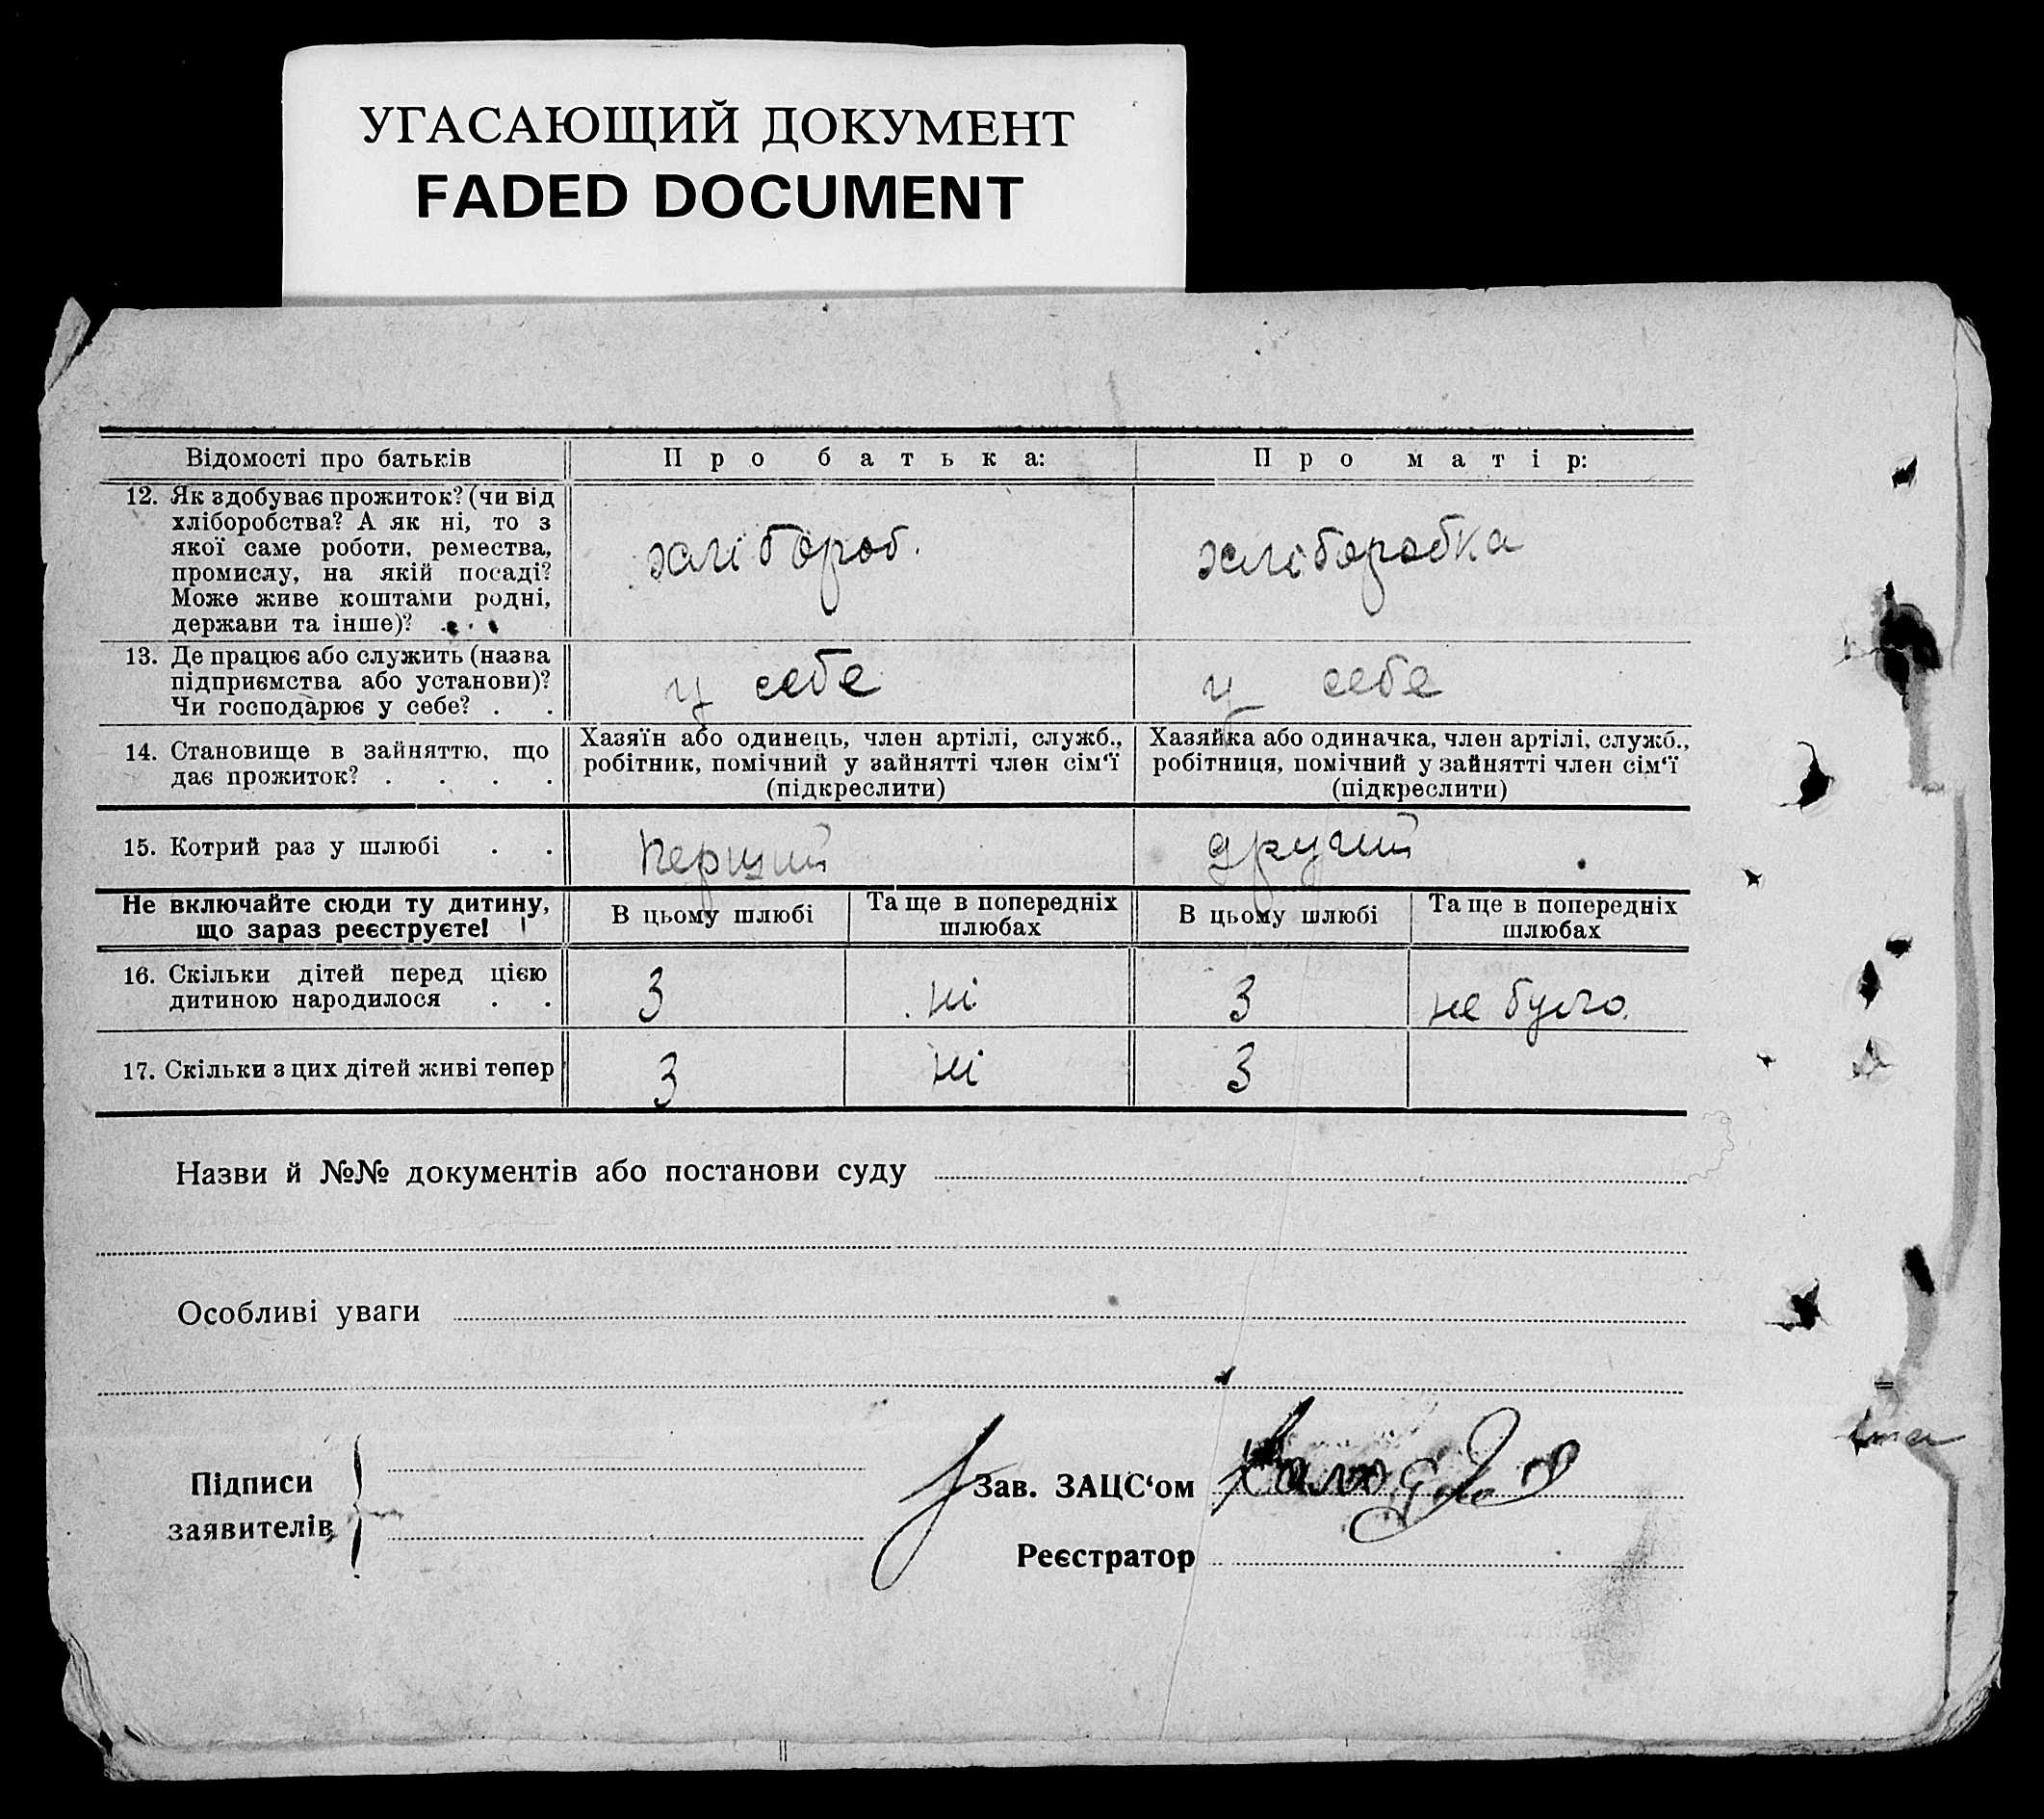 УГАСАЮЩИЙ ДОКУМЕНТ
FADED DOCUMENT
Відомості про батьків
Про батька:
Про матір:
12. Як здобуває прожиток? (чи від
хліборобства? А як ні, то з
якої саме роботи, ремества,
промислу, на якій посаді?
Може живе коштами родні,
держави та інше)? . . .
хлібороб.
хліборобка
13. Де працює або служить (назва
підприємства або установи)?
Чи господарює у себе? . .
у себе
у себе
14. Становище в зайняттю, що
дає прожиток? . . . .
Хазяїн або одинець, член артілі, служб.,
робітник, помічний у зайнятті член сім‘ї
(підкреслити)
Хазяйка або одиначка, член артілі, служб.,
робітниця, помічний у зайнятті член сім‘ї
(підкреслити)
15. Котрий раз у шлюбі . .
перший
другий
Не включайте сюди ту дитину,
що зараз реєструєте!
В цьому шлюбі
Та ще в попередніх
шлюбах
В цьому шлюбі
Та ще в попередніх
шлюбах
16. Скільки дітей перед цією
дитиною народилося . .
3
ні
3
не було.
17. Скільки з цих дітей живі тепер
3
ні
3
Назви й №№ документів або постанови суду
Особливі уваги
Підписи
заявителів
Зав. ЗАЦС‘ом
Реєстратор